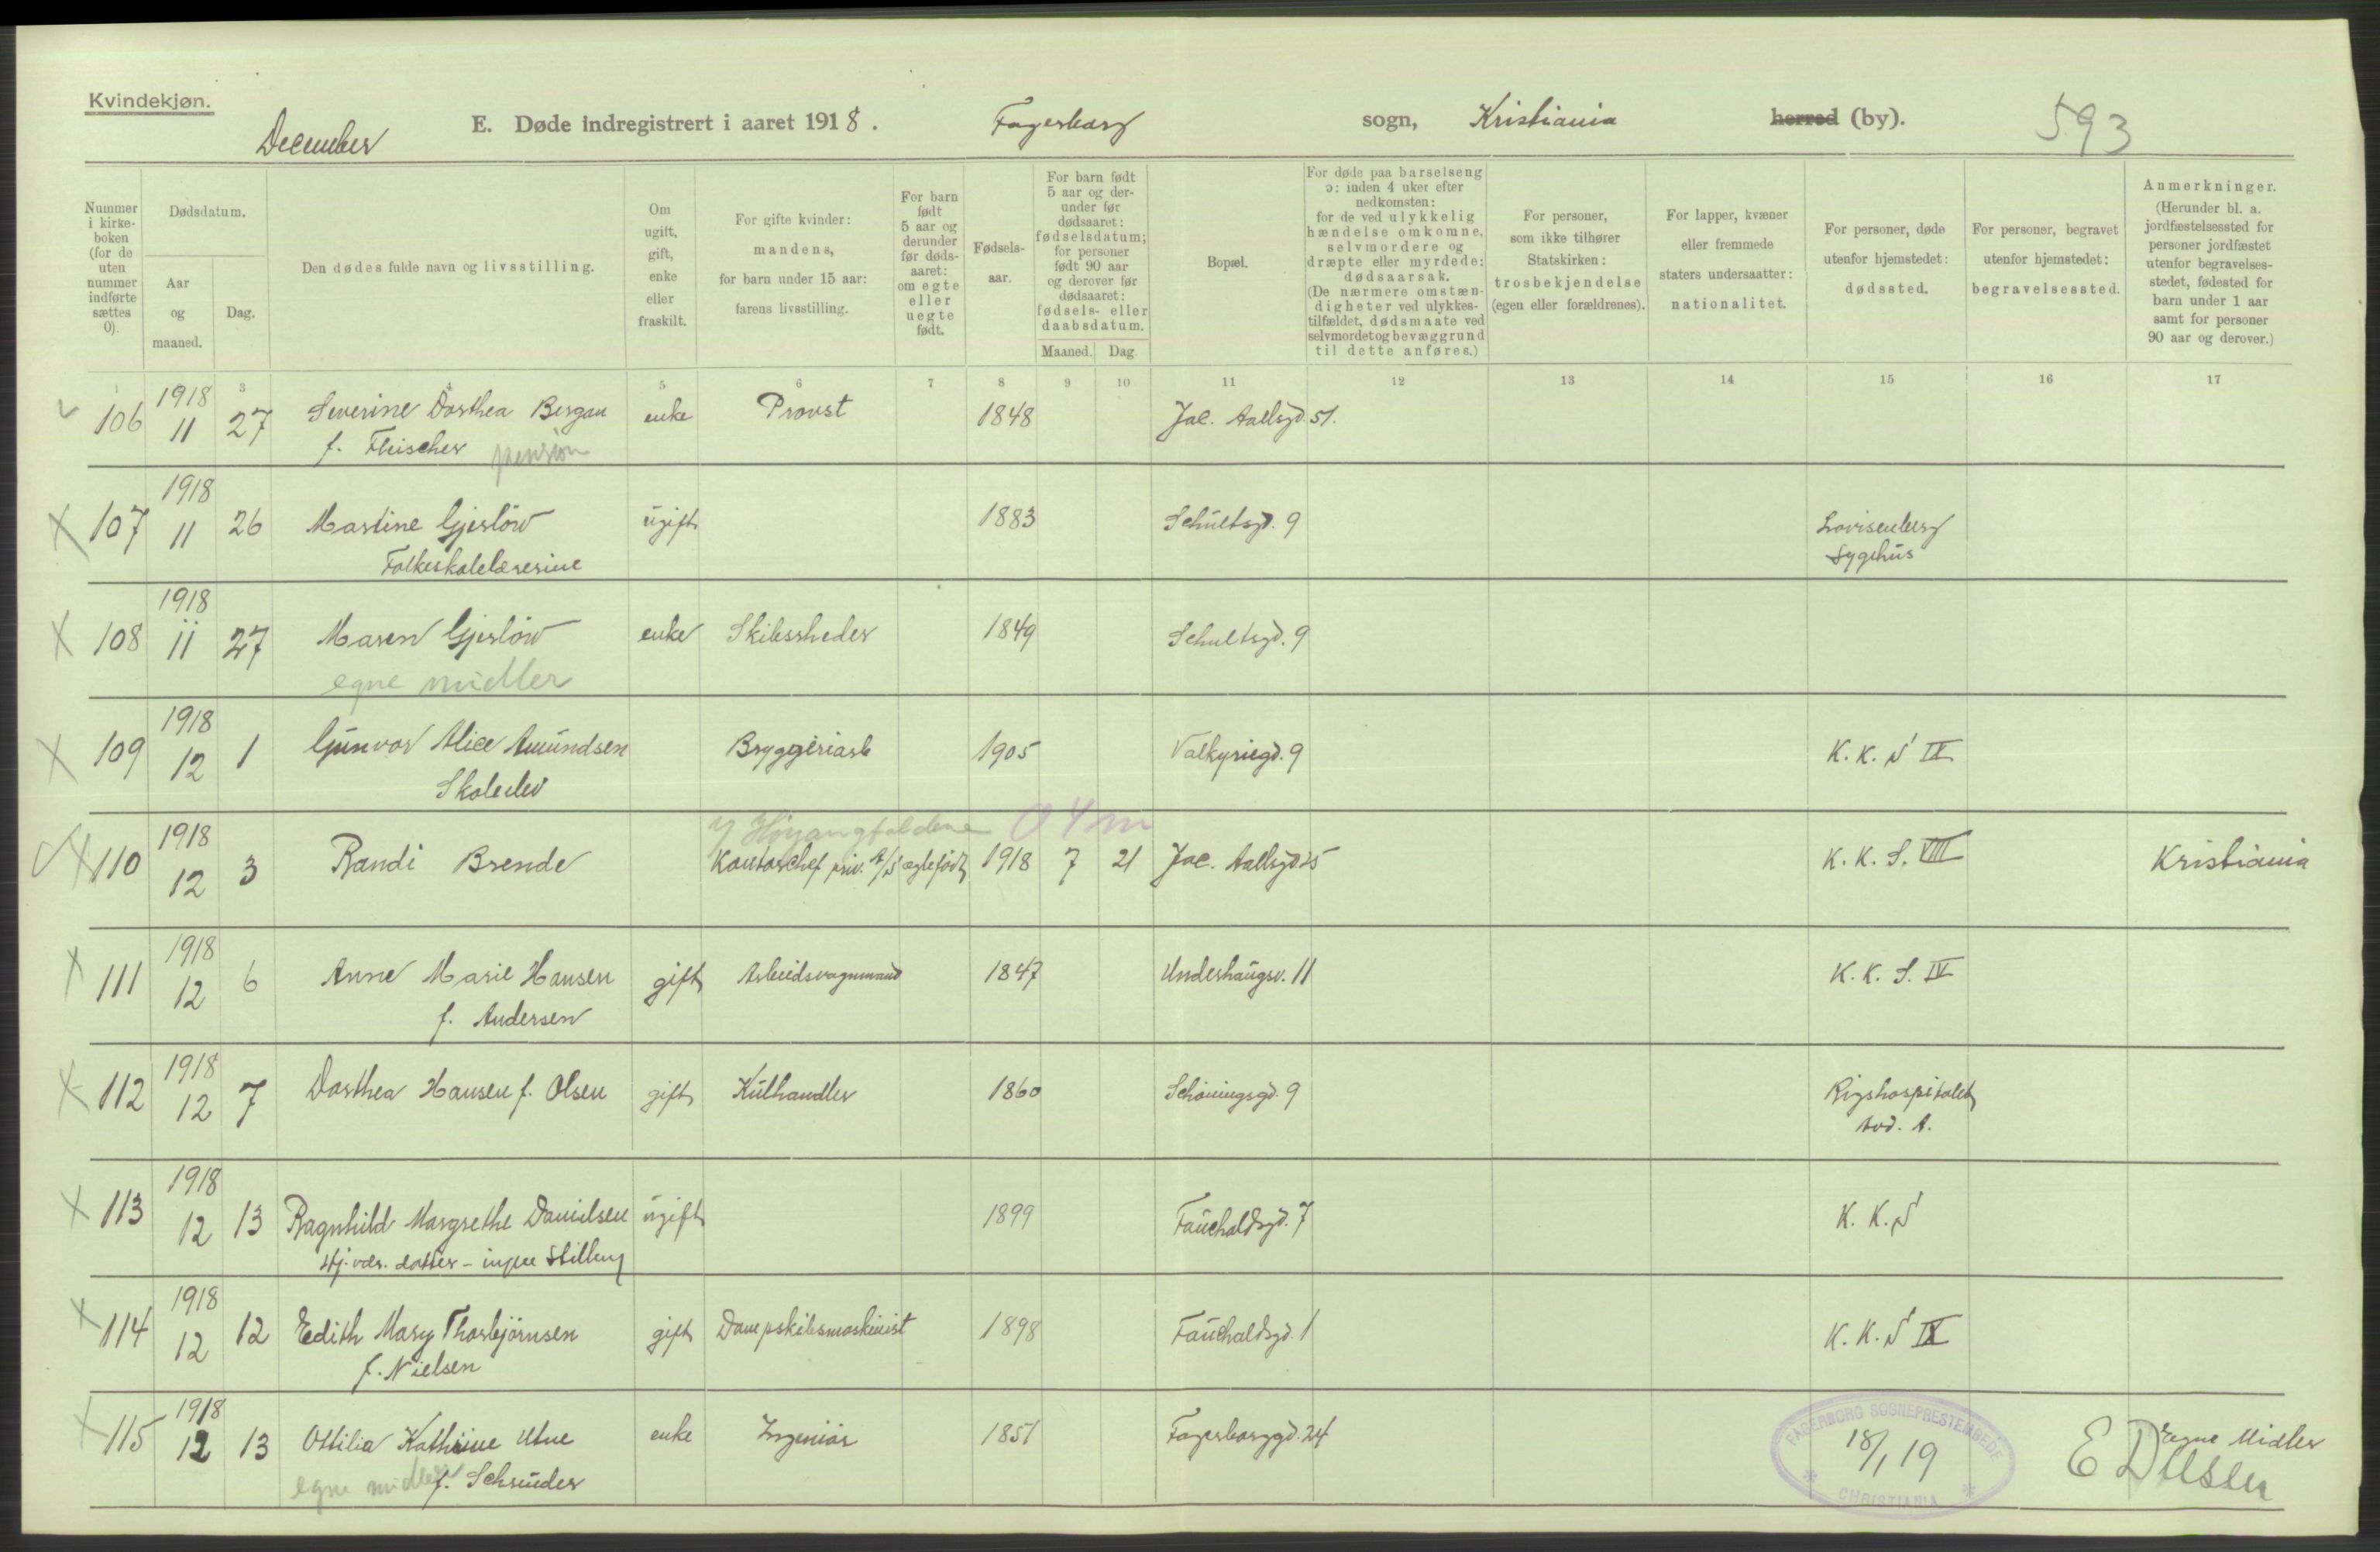 Kvindekjøn.
December
E. Døde indregistrert i aaret 1918.
Fagerborg
sogn,
Kristiania
herred (by).
593
Nummer i kirke-boken (for de uten nummer indførte sættes 0).
Dødsdatum.
Aar og maaned.
Dag.
Den dødes fulde navn og livsstilling.
Om ugift, gift, enke eller fraskilt.
For gifte kvinder: mandens, for barn under 15 aar: farens livsstilling.
For barn født 5 aar og derunder før døds-aaret: om egte eller uegte født.
Fødsels-aar.
For barn født 5 aar og der-under før dødsaaret: fødselsdatum; for personer født 90 aar og derover før dødsaaret: fødsels- eller daabsdatum.
Maaned.
Dag
Bopæl.
For døde paa barselseng ɔ: inden 4 uker efter nedkomsten: for de ved ulykkelig hændelse omkomne, selvmordere og dræpte eller myrdede: dødsaarsak. (De nærmere omstæn-digheter ved ulykkes-tilfældet, dødsmaate ved selvmordet og bevæggrund til dette anføres.)
For personer, som ikke tilhører Statskirken: trosbekjendelse (egen eller forældrenes).
For lapper, kvæner eller fremmede staters undersaatter: nationalitet.
For personer, døde utenfor hjemstedet: dødssted.
For personer, begravet utenfor hjemstedet: begravelsessted.
Anmerkninger. (Herunder bl. a. jordfæstelsessted for personer jordfæstet utenfor begravelses-stedet, fødested for barn under 1 aar samt for personer 90 aar og derover.)
1 3 4 5 6 7 8 9 10 11 12 13 14 15 16 17
106 1918 11 27 Severine Dorthea Bergan enke Provst 1848 Jac. Aallsgd. 51.
f. Fleischer pension
107 1918 11 26 Martine Gjerlöw ugift 1883 Schultsgd. 9 Lovisenberg
Folkeskolelærerine Sygehus
108 1918 11 27 Maren Gjerlöw enke Skibsrheder 1849 Schultsgd. 9
egne midler
109 1918 12 1 Gunvor Alice Amundsen Bryggeriarb 1905 Valkyriegd. 9 K. K. S IX
Skoleelev
110 1918 12 3 Randi Brende Kontorchef priv. A/S ægtefödt 1918 7 21 Jac. Aallsgd 25 K. K. S. VIII Kristiania
0 4 m
111 1918 12 6 Anne Marie Hansen gift Arbeidsvognmand 1847 Underhaugsv. 11 K. K. S. IV
f. Andersen
112 1918 12 7 Dorthea Hansen f. Olsen gift Kulhandler 1860 Schöningsgd. 9 Rigshospitalet
Avd. A.
113 1918 12 13 Ragnhild Margrethe Danielsen ugift 1899 Fauchaldsgd. 7 K. K. S
Hj. vær. datter - ingen Stilling
114 1918 12 12 Edith Mary Thorbjörnsen gift Dampskibsmaskinist 1898 Fauchaldsgd. 1 K. K. S IX
f. Nielsen
115 1918 12 13 Ottilia Kathrine Utne enke Ingeniör 1851 Fagerborggd. 24 Egne Midler
egne midler f. Schrøder
FAGERBORG SOGNEPRESTEMBEDE
18/1 19
CHRISTIANIA